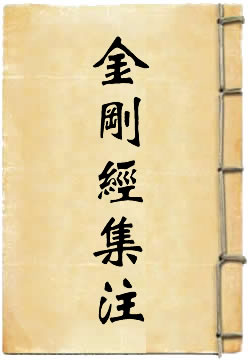 金剛經集注